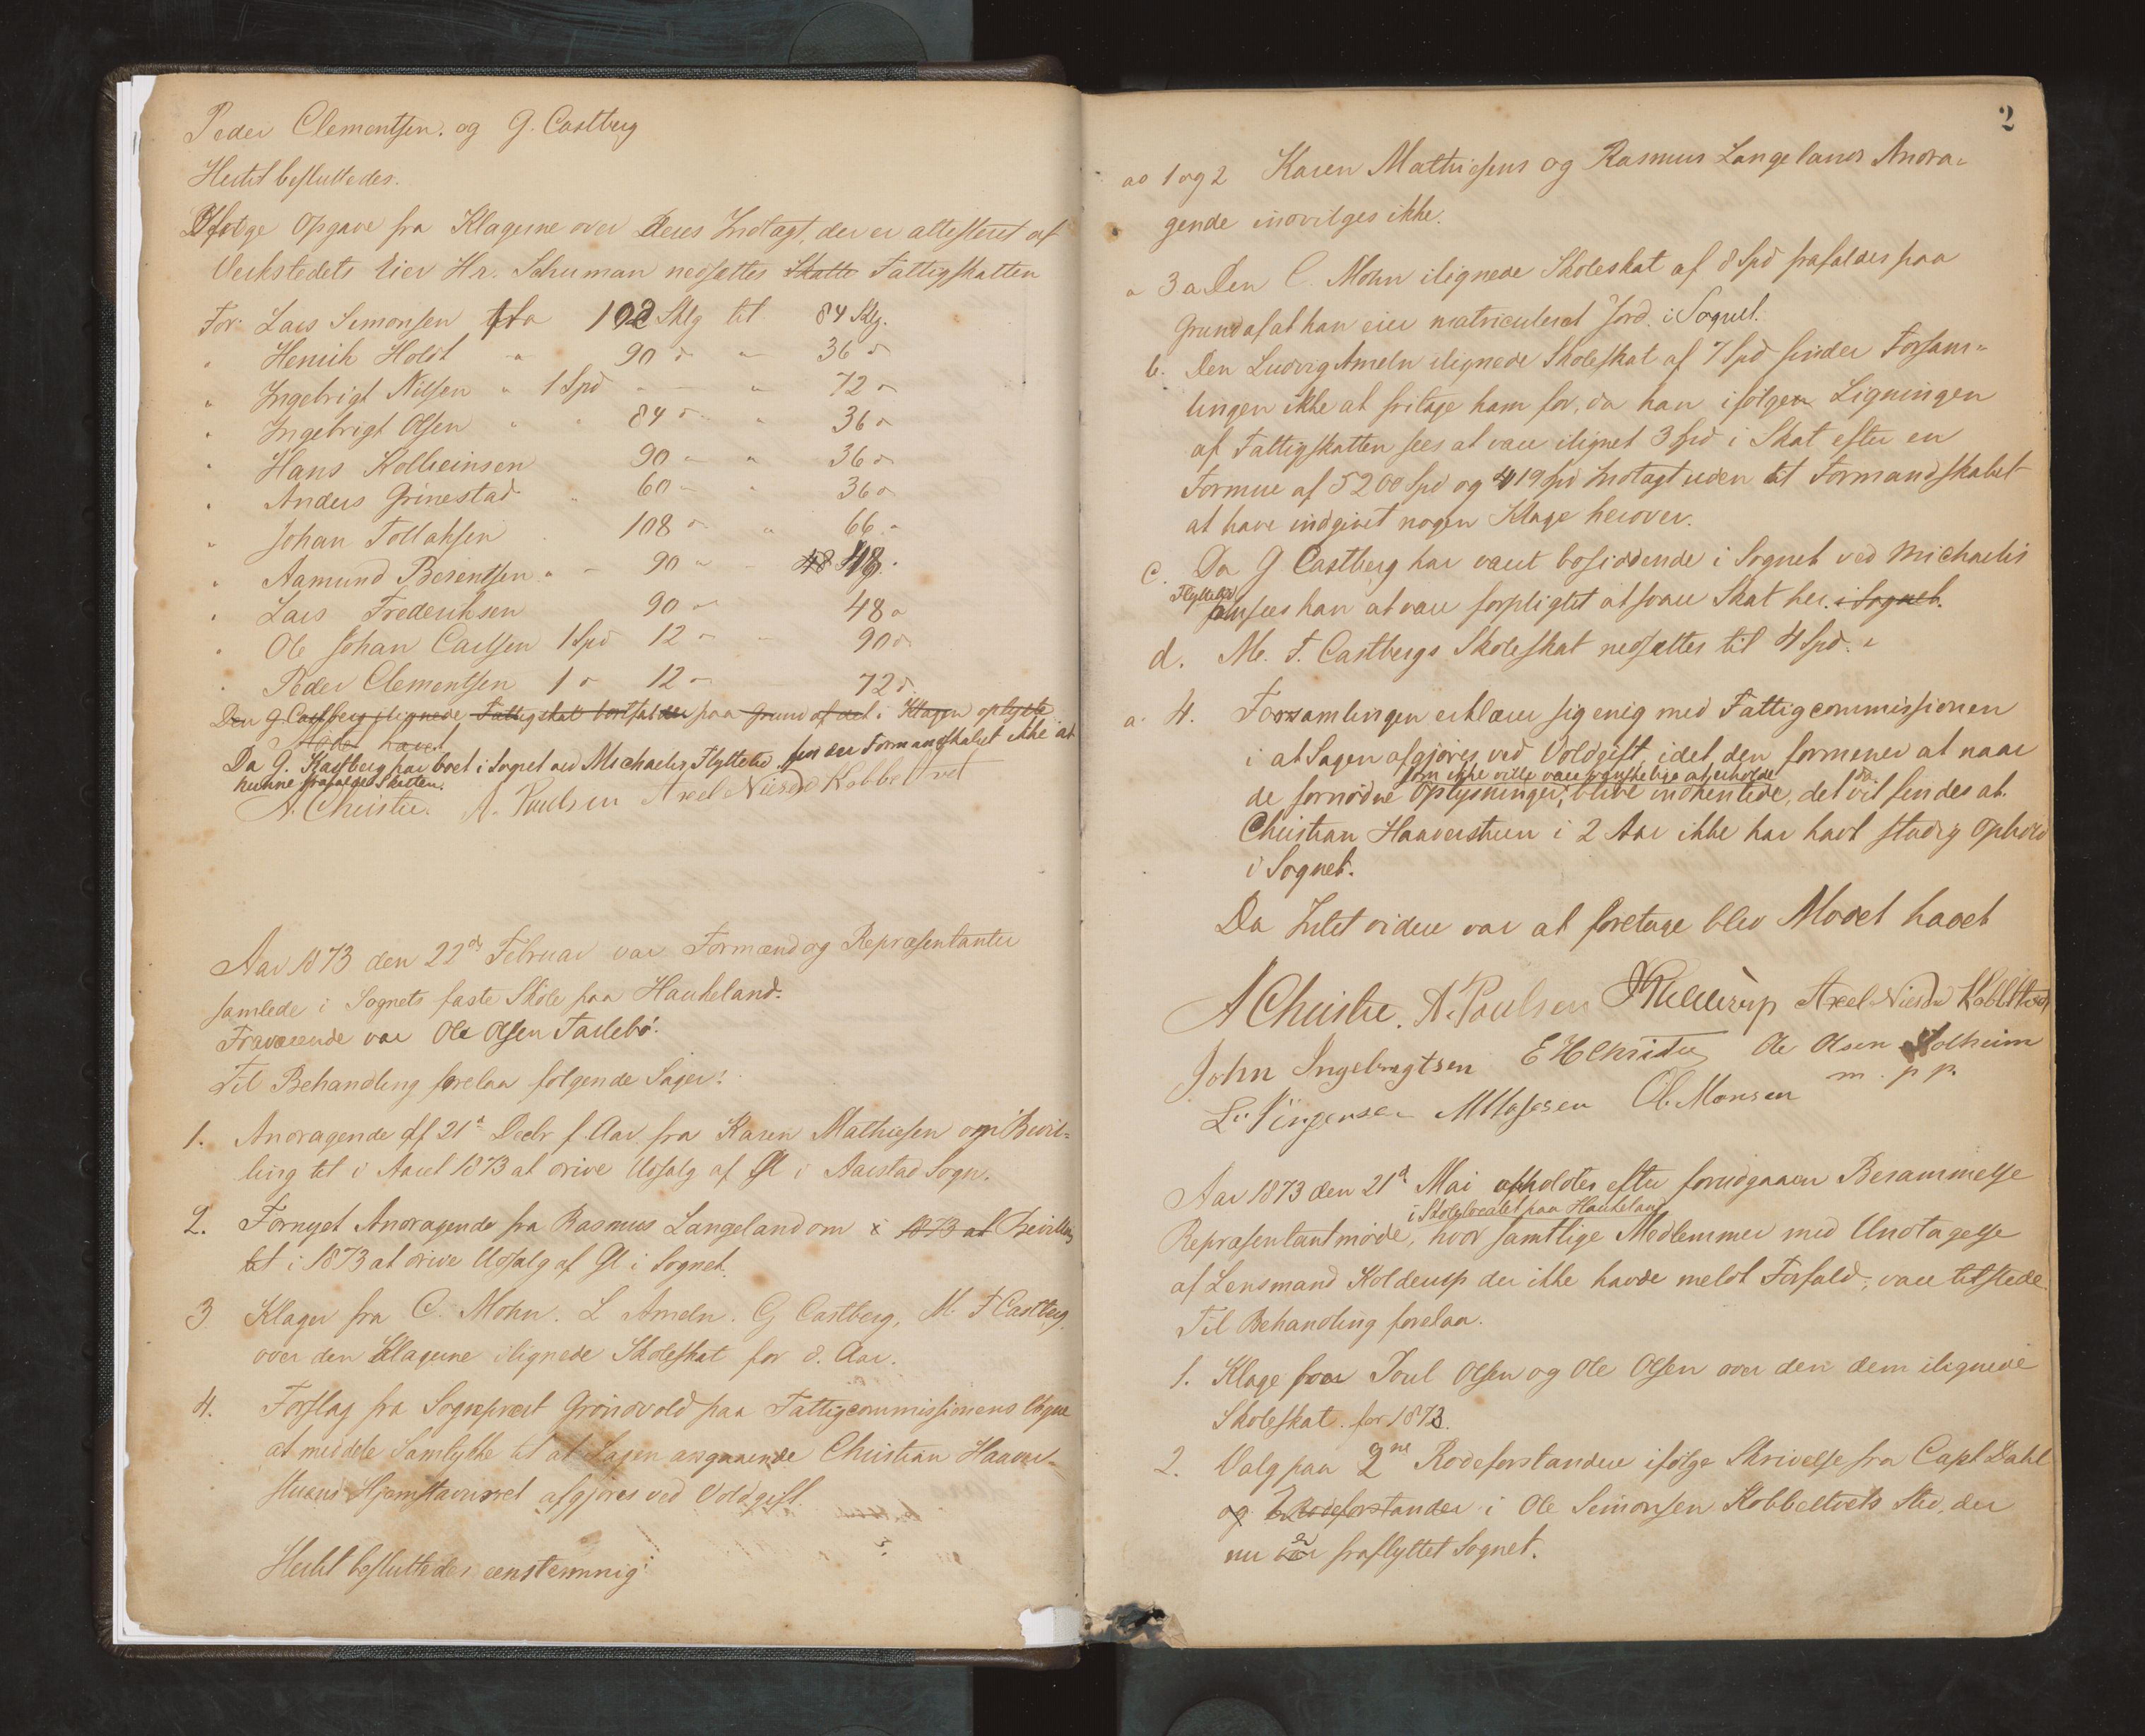 Peder Clementsen. og G. Castberg
Hertil besluttedes.
Ifølge Opgave fra Klagerne over deres Indtægt, der er attesteret af
Verkstedets Eier Hr. Schuman nedsættes Skatte Fattigskatten
For: Lars Simonsen fra 102 Sklg til 84 Sklg.
" Henrik Holdt " 90 " " 36 "
" Ingebrigt Nilsen " 1 Spd " — " 72 "
" Ingebrigt Olsen " " 84 " " 36 "
" Hans Kolbeinsen 90 " " 36 "
" Anders Grinestad " 60 " " 36 "
" Johan Tollaksen 108 " " 66 "
" Aamund Berentsen " " 90 " " 48 48 "
" Lars Frederiksen 90 " " 48 "
" Ole Johan Carlsen 1 Spd 12 " " 90 "
" Peder Clementsen 1 " 12 " 72 "
Den G. Castberg ilignede Fattigskat bortfalder paa Grund af det i Klagen oplyste
Mødet hævet
Da G. Kastberg har boet i Sognet ved Michaelis Flyttetid finder Formandskabet ikke at
kunne frafalde Skatten.
A. Christie. A. Paulsen Axel Nielsen Kobbeltvet
Aar 1873 den 22de Februar var Formænd og Repræsentanter
samlede i Sognets faste Skole paa Haukeland.
Fraværende var Ole Olsen Tarlebø.
Til Behandling forelaa følgende Sager:
1. Andragende af 21de Decbr f. Aar fra Karen Mathiesen om Bevil=
ling til i Aaret 1873 at drive Udsalg af Øl i Aarstad Sogn.
2. Fornyet Andragende fra Rasmus Langeland om i 1873 at Bevilling
til i 1873 at drive Udsalg af Øl i Sognet.
3. Klager fra C. Mohn. L Ameln. G Castberg, M. F Castberg.
over den Klagerne ilignede Skoleskat for d. Aar.
4. Forslag fra Sogneprest Grøndvold paa Fattigcommissionens Vegne
at meddele Samtykke til at Sagen angaaende Christian Haaver-
stuens Hjemstavnsret afgjøres ved Voldgift.
Hertil besluttedes eenstemmig:
2
ad 1 og 2 Karen Mathiesens og Rasmus Langelands Andra=
gende indvilges ikke.
" 3 a Den C. Mohn ilignede Skoleskat af 8 Spd frafaldes paa
Grund af at han eier matriculeret Jord. i Sognet.
b. Den Ludvig Ameln ilignede Skoleskat af 7 Spd finder Forsam=
lingen ikke at fritage ham for, da han ifølgen Ligningen
af Fattigskatten sees at være ilignet 3 Spd i Skat efter en
Formue af 5200 Spd og 419 Spd Indtægt uden til Formandskabet
at have indgivet nogen Klage herover.
c. Da G Castberg har været bosiddende i Sognet ved Michaelis
Flyttetid
ansees han at være forpligtet at svare Skat her. i Sognet.
d. M. F. Castbergs Skoleskat nedsættes til 4 Spd. "
a. 4. Forsamlingen erklærer sig enig med Fattigcommissionen
i at Sagen afgjøres ved Voldgift, idet den formener at naar
som ikke ville være vanskelige at erholde
de fornødne Oplysninger, blive indhentede, det da vil findes at
Christian Haaverstuen i 2 Aar ikke har havt stadig Ophold
i Sognet.
Da Intet videre var at foretage blev Mødet hævet
A Christie. A. Paulsen Kolderup Axel Nielsen Kobbeltvedt
John Ingebrigtsen E H Christie Ole Olsen Solheim
m. p. p.
L. Jørgensen M Clasesen Ol. Monsen
Aar 1873 den 21de Mai afholdtes efter forudgaaen Berammelse
i Skolelocalet paa Haukeland
Repræsentantmøde, hvor samtlige Medlemmer med Undtagelse
af Lensmand Kolderup der ikke havde meldt Forfald, vare tilstede.
Til Behandling forelaa.
1. Klage fra Poul Olsen og Ole Olsen over den dem ilignede
Skoleskat. for 1873.
2. Valg paa 2ne Rodeforstandere ifølge Skrivelse fra Capt Dahl
og 2 Rodeforstander i Ole Simonsen Kobbeltvets Sted, der
nu er fraflyttet Sognet.